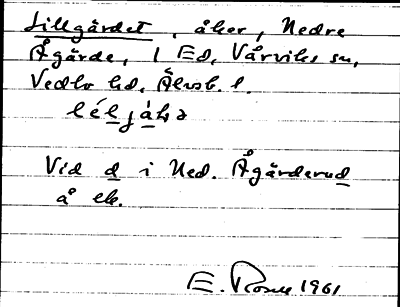 Lillgärdet, åker, Nedre
Ågärde, 1 Ed, Vårviks sn,
Vedbo hd, Älvsb. l.
léljáḷə
Vid d i Ned. Ågärderud
å ek.
E. Rosell 1961